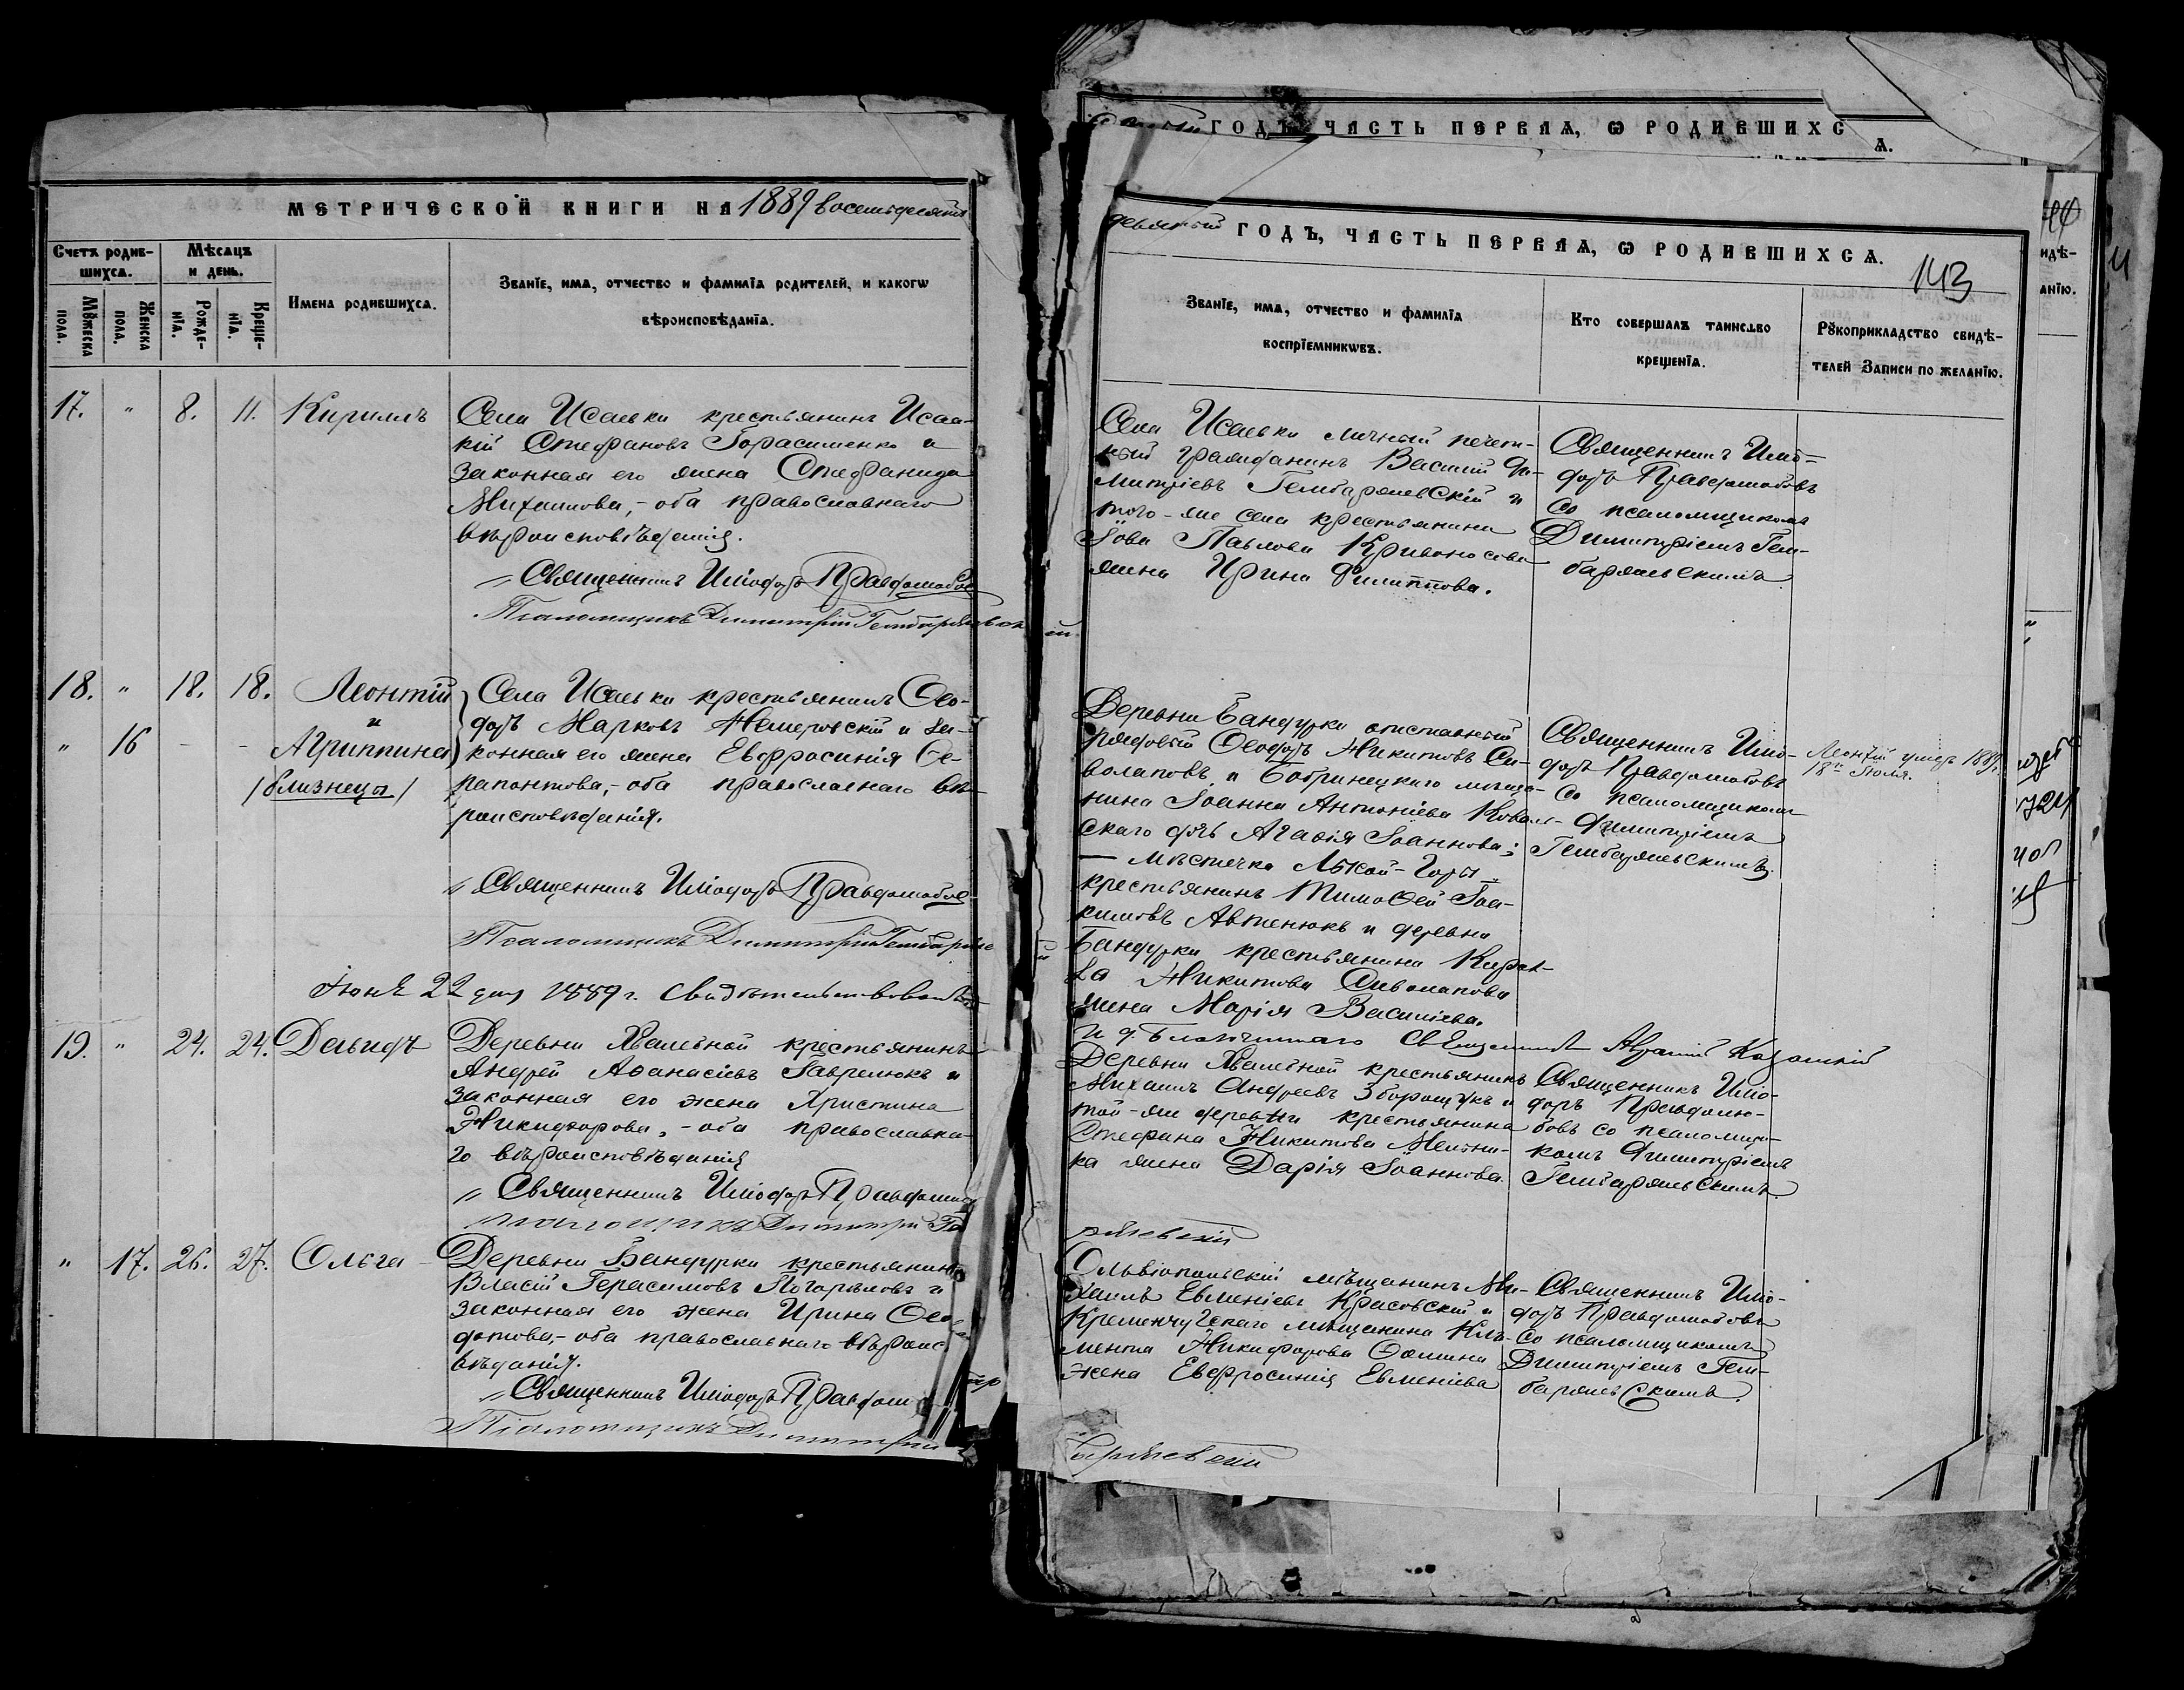 МЕТРИЧЕСКОЙ КНИГИ НА 1889 восемьдесятъ
Счетъ родив-
шихся.
Мѣсяцъ
и день.
Мужеска
пола.
Женска
пола.
Рожде-
нїя.
Креще-
нїя.
Имена родившихся.
Званїе, имя, отчество и фамилїя родителей, и какогѡ
вѣроисповѣданїя.
17. " 8. 11. Кириллъ
Села Исаевки крестьянинъ Исаа-
кій Стефановъ Гарасименко и
законная его жена Стефанида
Михаилова, - оба православнаго
вѣроисповѣданія.
Священникъ Иліодоръ Правдолюбов
Псаломщикъ Димитрій Гембаржевск
18. " 18. 18. Леонтій
и
" 16 - - Агриппина
/близнецы/
Села Исаевки крестьянинъ Ѳео-
доръ Марковъ Немеровскій и за-
конная его жена Евфросинія Се-
рапонтова, - оба православнаго вѣ-
роисповѣданія.
Священникъ Иліодоръ Правдолюбов
Псаломщикъ Димитрій Гембарже
Іюня 22 дня 1889 г. Свидѣтельствовалъ
19. " 24. 24. Давидъ
Деревни Хвалебной крестьянинъ
Андрей Аѳанасіевъ Гаврилюкъ и
законная его жена Христина
Никифорова, - оба православна-
го вѣроисповѣданія
Священникъ Иліодоръ Правдолюб
Псаломщикъ Димитрій Ге
" 17. 26. 27. Ольга
Деревни Бандурки крестьянинъ
Власій Герасимовъ Погорѣловъ и
законная его жена Ирина Ѳео-
дотова, - оба православнаго вѣроис-
вѣданія.
Священникъ Иліодоръ Правдолю
Псаломщикъ Димитрій
ГОДЪ, ЧАСТЬ ПЕРВАЯ, Ѡ РОДИВШИХСЯ.
девятый ГОДЪ, ЧАСТЬ ПЕРВАЯ, Ѡ РОДИВШИХСЯ.
143
Званїе, имя, отчество и фамилїя
воспрїемникѡвъ.
Кто совершалъ таинство
крещенїя.
Рукоприкладство свидѣ-
телей Записи по желанїю.
Села Исаевки личный почет-
ный гражданинъ Василій Ди-
митріевъ Гембаржевскій и
того-же села крестьянина
Іова Павлова Кривоносова
жена Ирина Филиппова.
Священникъ Иліо-
доръ Правдолюбовъ
со псаломщикомъ
Димитріемъ Гем-
баржевскимъ
Деревни Бандурки отставный
рядовый Ѳеодоръ Никитовъ Си-
волаповъ и Бобринецкаго мѣща-
нина Іоанна Антоніева Коваль-
скаго дочь Агафія Іоаннова;
— мѣстечка Лысой-Горы
крестьянинъ Тимоѳей Іоа-
кимовъ Автенюкъ и деревни
Бандурки крестьянина Кирил-
ла Никитова Сиволапова
жена Марія Василіева.
Священникъ Иліо-
доръ Правдолюбовъ
со псаломщикомъ
Димитріемъ
Гембаржевскимъ.
Леонтій умеръ 1889 г.
18го Іюля.
И. д. Благочиннаго Священникъ
Деревни Хвалебной крестьянинъ
Михаилъ Андреевъ Зборощукъ и
той-же деревни крестьянина
Стефана Никитова Мельни-
ка жена Дарія Іоаннова.
Священникъ Иліо-
доръ Правдолю-
бовъ со псаломщи-
комъ Димитріемъ
Гембаржевскимъ.
ржевскій
Ольвіопольскій мѣщанинъ Ми-
хаилъ Евменіевъ Красовскій и
Кременчугскаго мѣщанина Кли-
мента Никифорова Ѳомина
жена Евфросинія Евменіева
Священникъ Иліо-
доръ Правдолюбовъ
со псаломщикомъ
Димитріемъ Гем-
баржевскимъ.
баржевскій